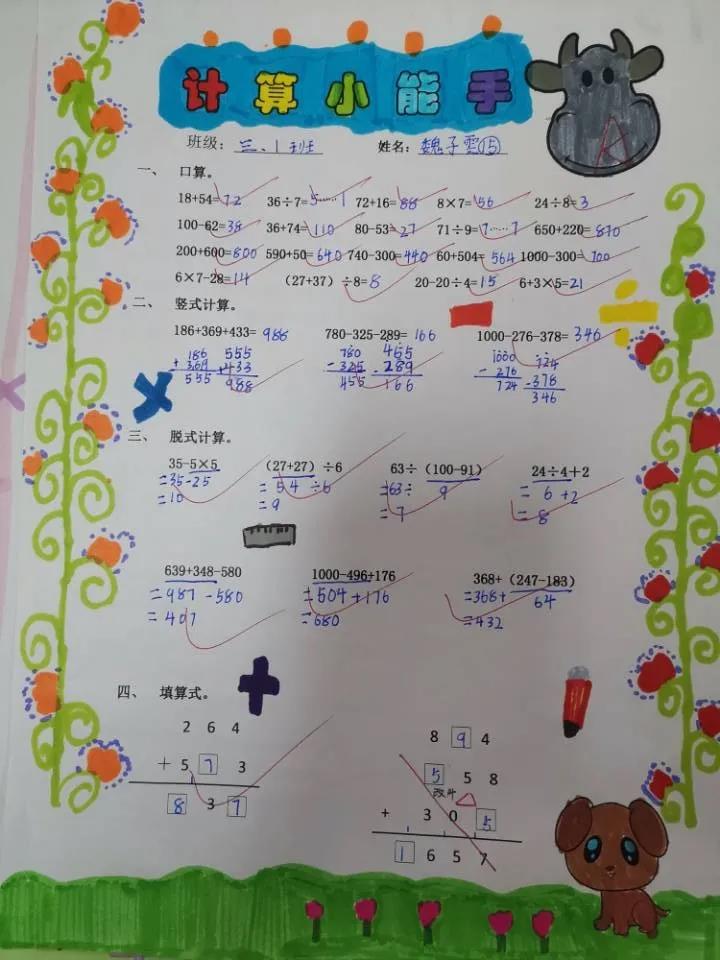 计算小能手
班级：三、1班 姓名：魏子雲⑮
一、 口算。
18+54=72 36÷7=5……1 72+16=88 8×7=56 24÷8=3
100-62=38 36+74=110 80-53=27 71÷9=7……7 650+220=870
200+600=800 590+50=640 740-300=440 60+504=564 1000-300=700
6×7-28=14 （27+37）÷8=8 20-20÷4=15 6+3×5=21
二、 竖式计算。
186+369+433=988 780-325-289=166 1000-276-378=346
186 555 780 455 1000 724
+369 +433 -325 -289 -276 -378
555 988 455 166 724 346
三、 脱式计算。
35-5×5 （27+27）÷6 63÷（100-91） 24÷4+2
=35-25 =54÷6 =63÷9 =6+2
=10 =9 =7 =8
639+348-580 1000-496+176 368+（247-183）
=987-580 =504+176 =368+64
=407 =680 =432
四、 填算式。
2 6 4 8 9 4
+ 5 7 3 5 5 8
8 3 7 + 3 0 5
1 6 5 7